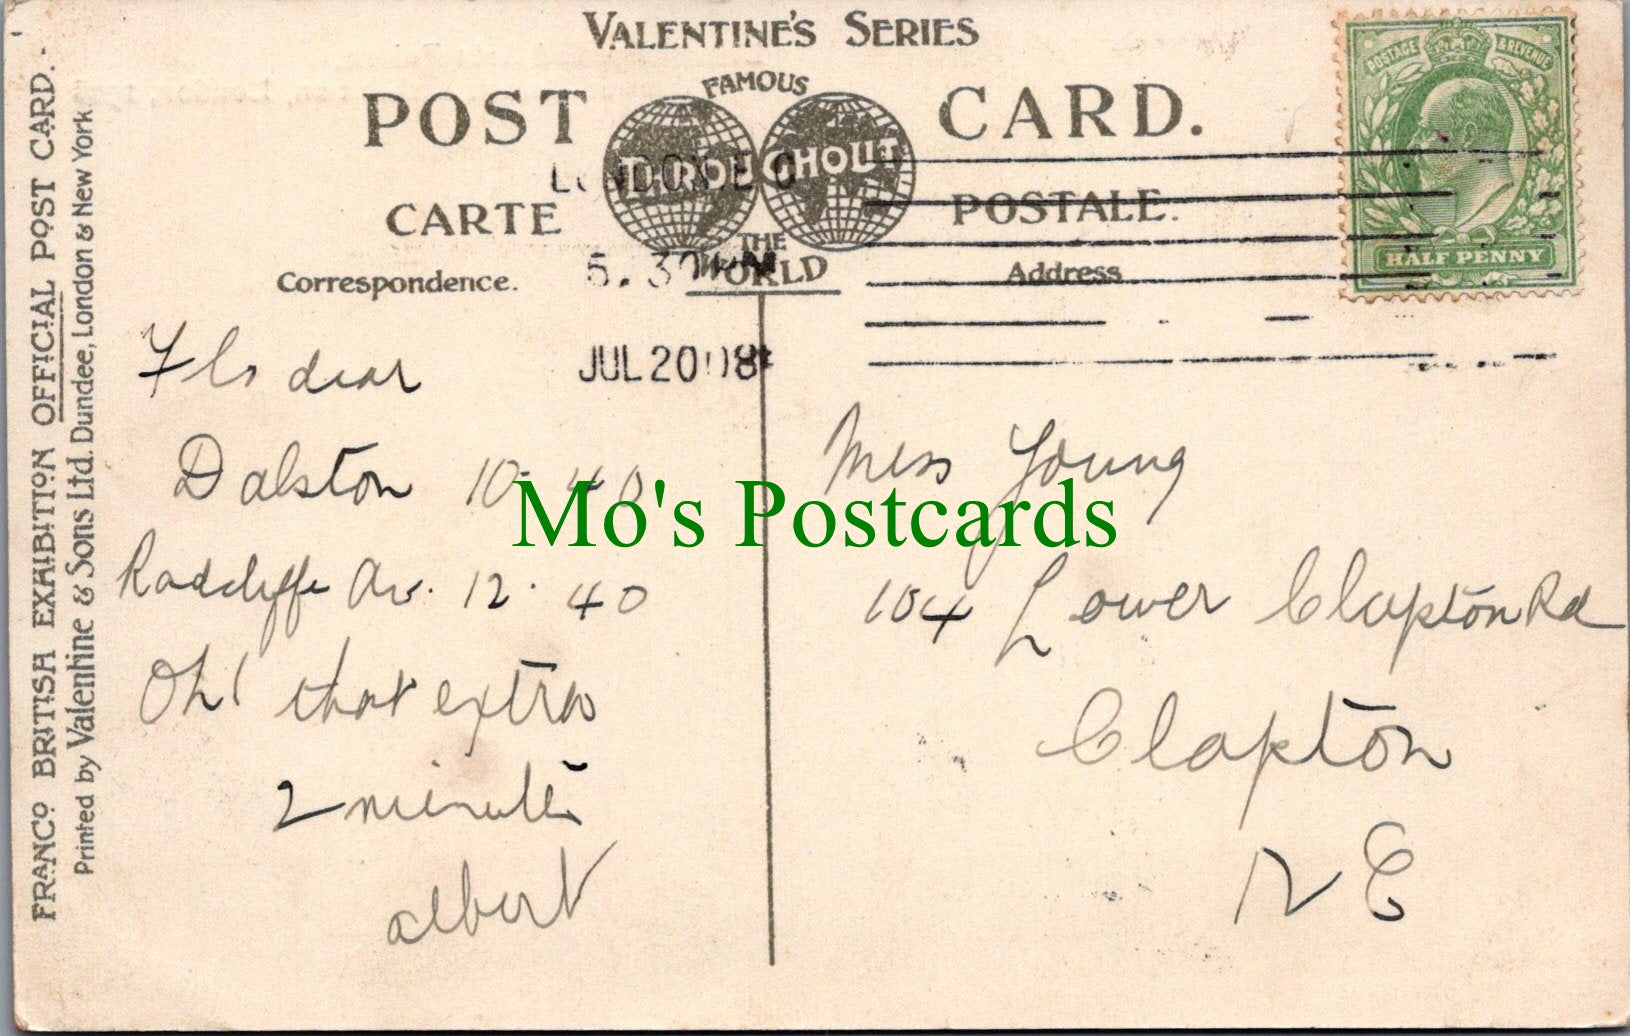 VALENTINE'S SERIES
POST CARD.
FAMOUS
THROUGHOUT
THE
WORLD
CARTE POSTALE.
Correspondence.
Address
POSTAGE & REVENUE
HALF PENNY
LONDON E C
5.30
JUL 20 08
FRANCO BRITISH EXHIBITION OFFICIAL POST CARD.
Printed by Valentine & Sons Ltd. Dundee, London & New York
Flo dear
Dalston 10.40
Radcliffe Av. 12.40
Oh! that extra
2 minutes
Albert
Miss Young
104 Lower Clapton Rd
Clapton
N E
Mo's Postcards